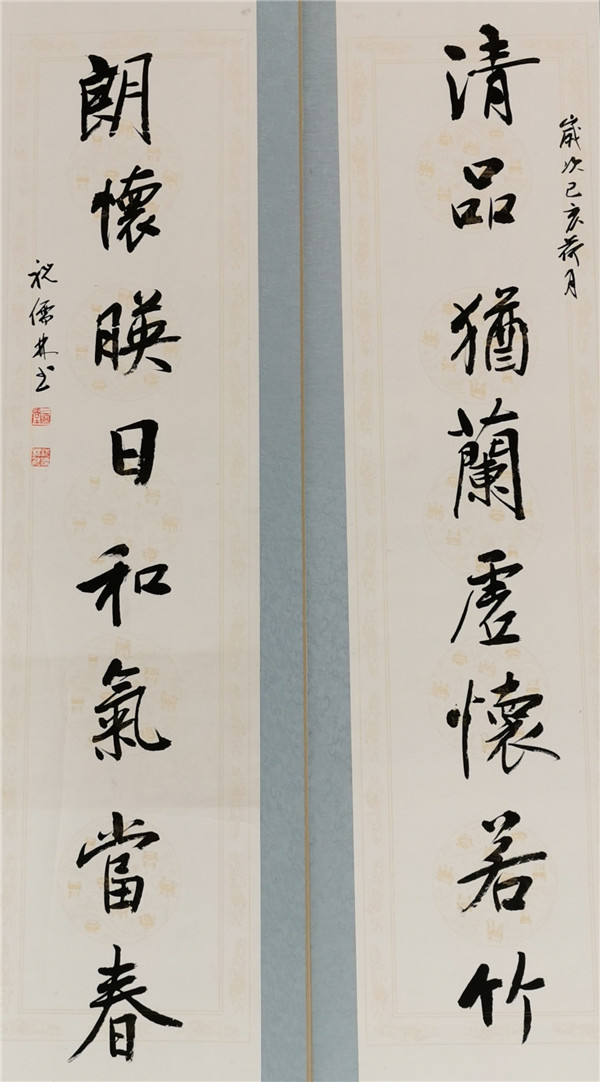 歲次己亥荷月
清品猶蘭虛懷若竹
朗懷暎日和氣當春
祝儒林书